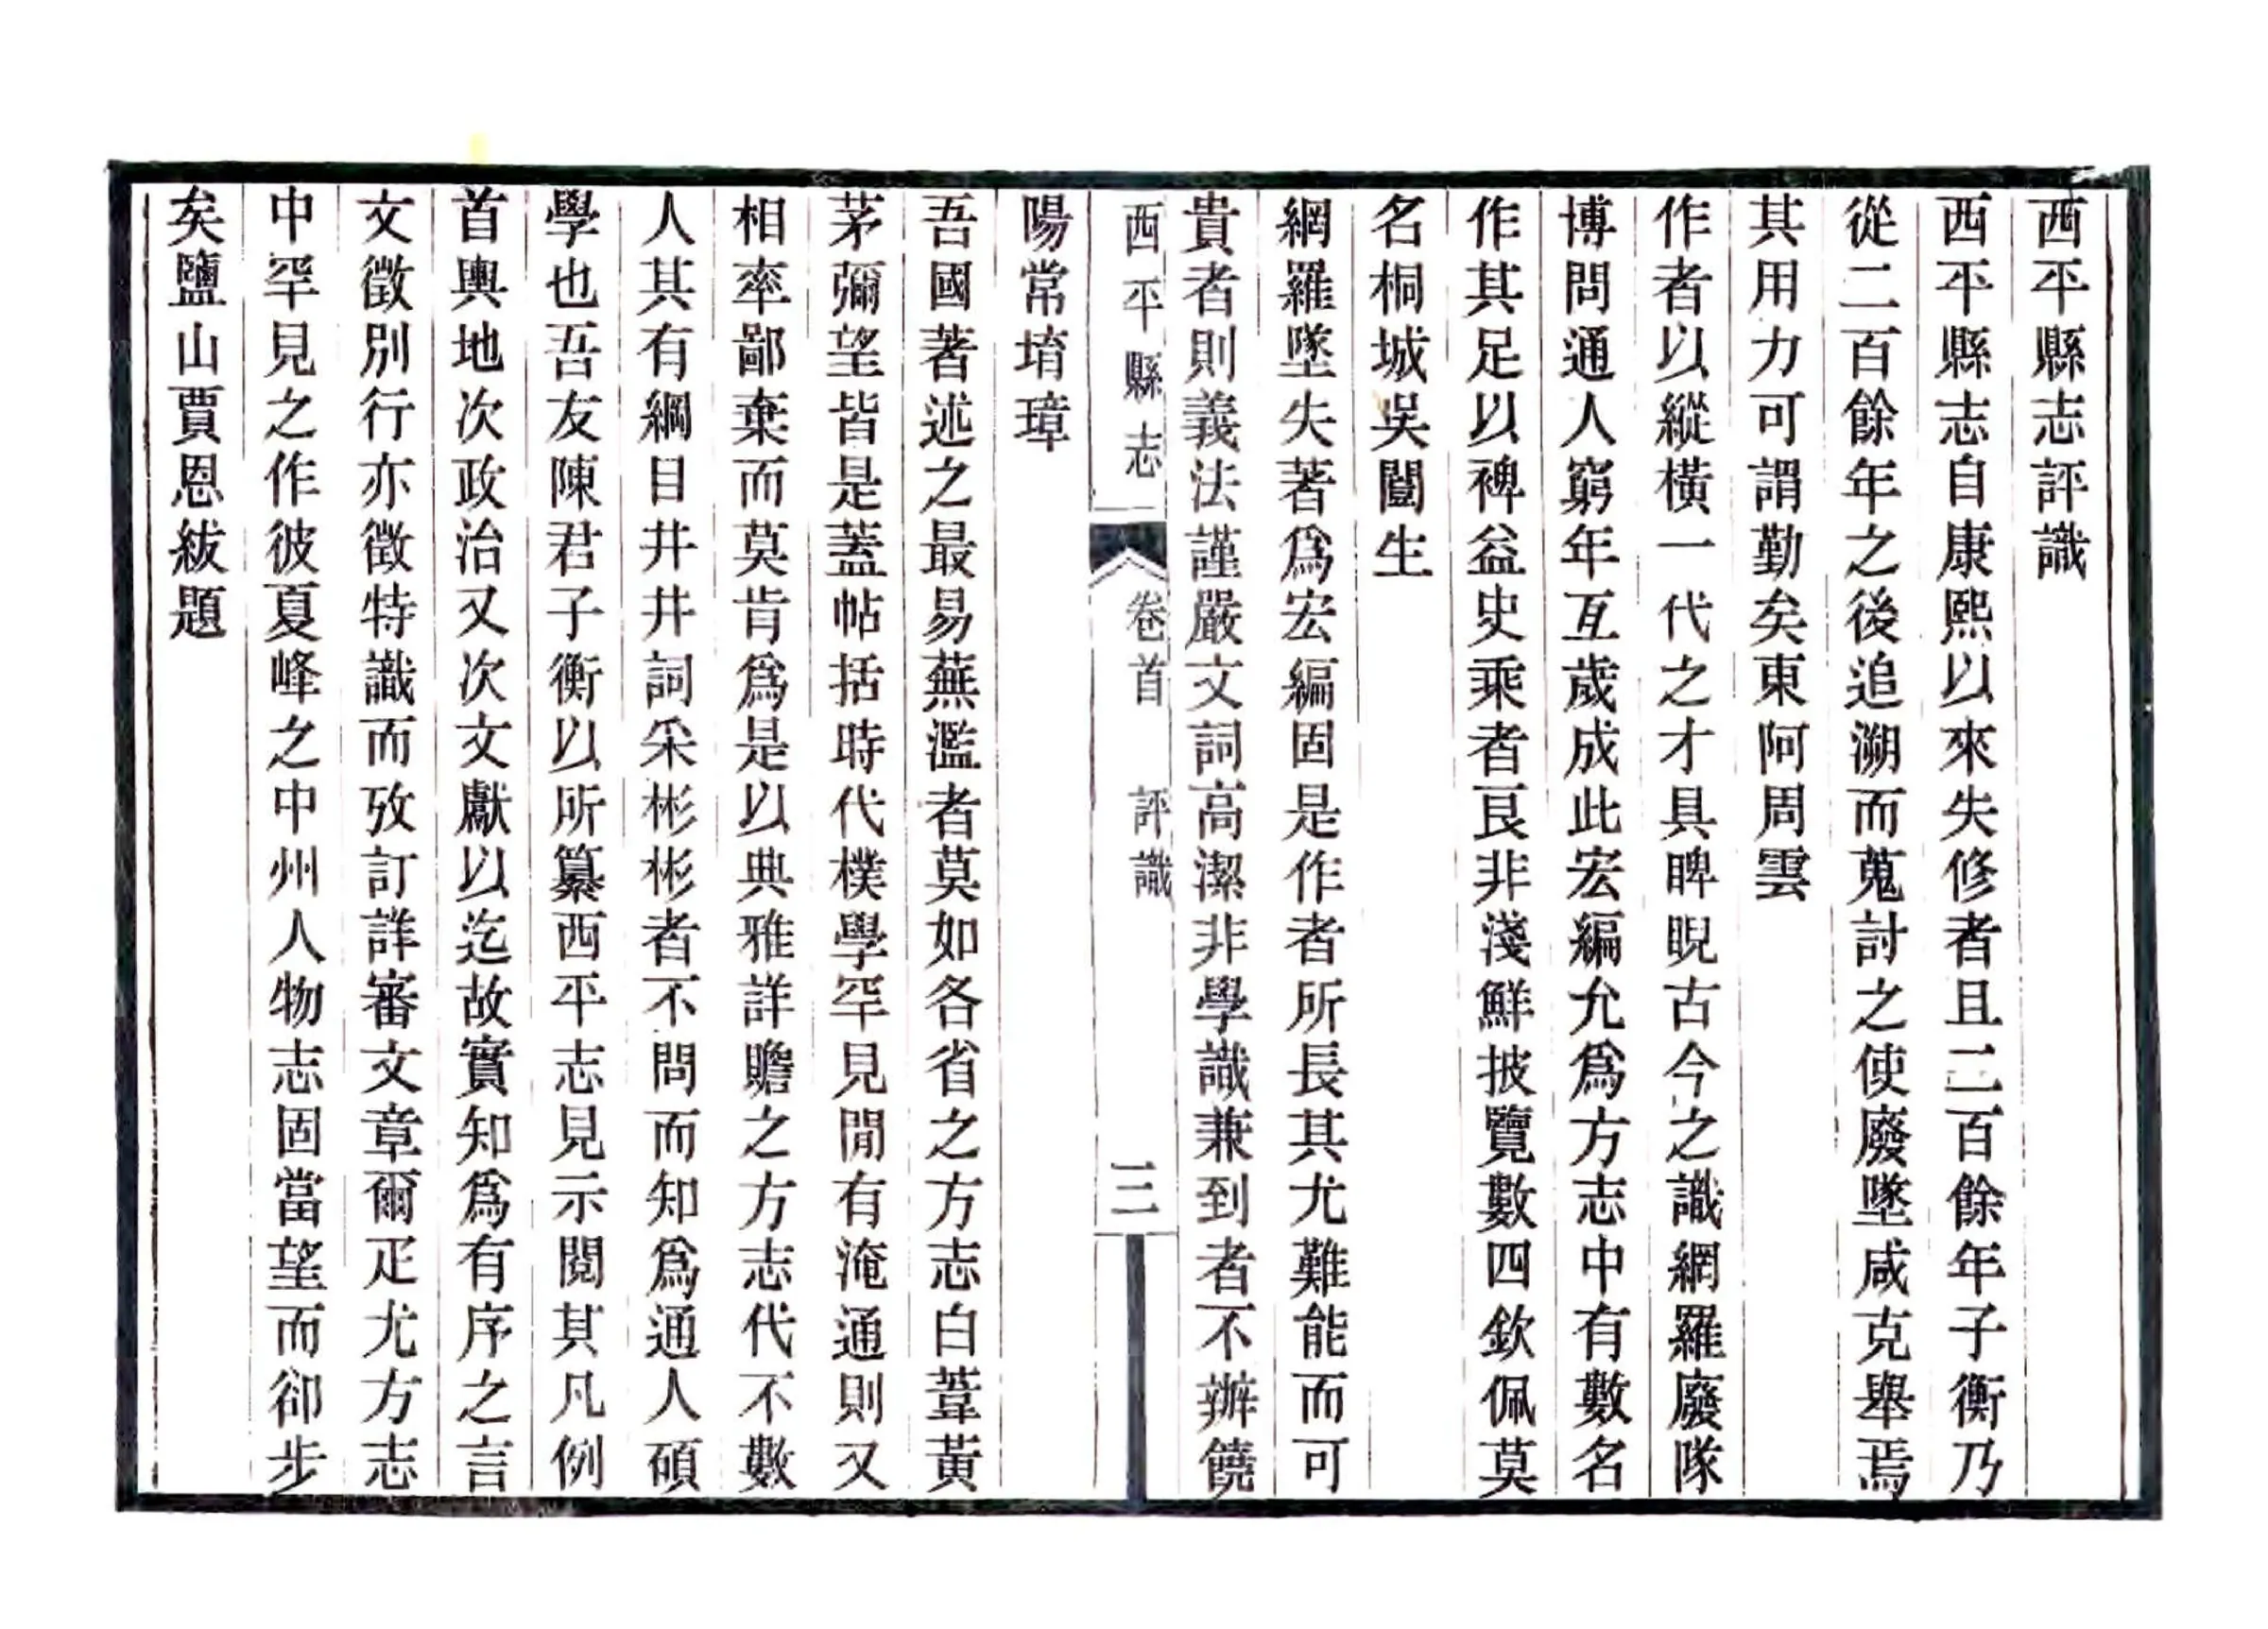 西平縣志評識
西平縣志自康熙以來失修者且二百餘年子衡乃
從二百餘年之後追溯而蒐討之使廢墜咸克舉焉
其用力可謂勤矣東阿周雲
作者以縱橫一代之才具睥睨古今之識網羅廢隊
博問通人窮年亙歲成此宏編允爲方志中有數名
作其足以裨益史乘者良非淺鮮披覽數四欽佩莫
名桐城吳闓生
網羅墜失著爲宏編固是作者所長其尤難能而可
貴者則義法謹嚴文詞高潔非學識兼到者不辦饒
西平縣志 卷首 評識 三
陽常堉璋
吾國著述之最易蕪濫者莫如各省之方志白葦黃
茅彌望皆是蓋帖括時代樸學罕見閒有淹通則又
相率鄙棄而莫肯爲是以典雅詳贍之方志代不數
人其有綱目井井詞采彬彬者不問而知爲通人碩
學也吾友陳君子衡以所纂西平志見示閱其凡例
首輿地次政治又次文獻以迄故實知爲有序之言
文徵別行亦徵特識而攷訂詳審文章爾疋尤方志
中罕見之作彼夏峰之中州人物志固當望而卻步
矣鹽山賈恩紱題